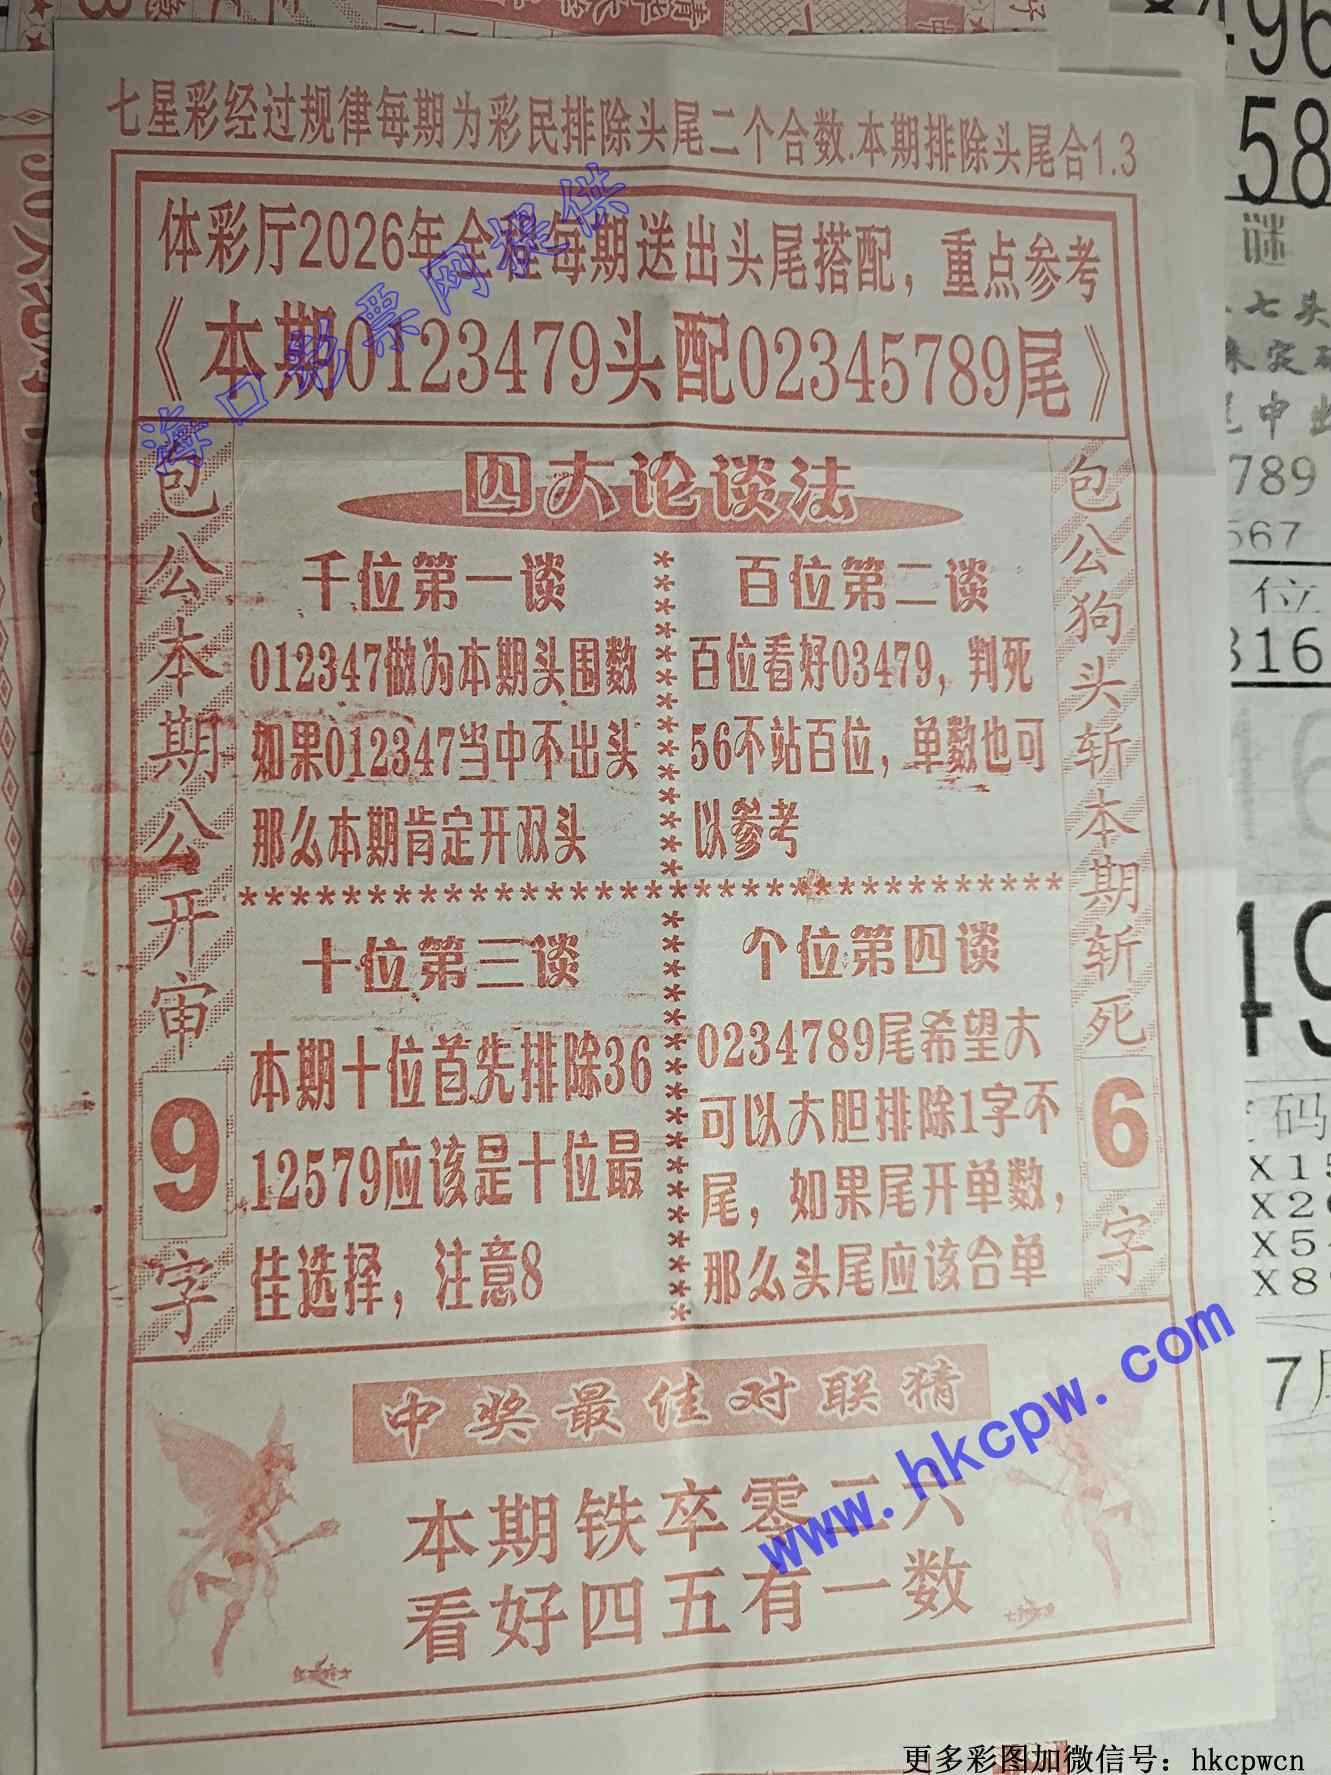 七星彩经过规律每期为彩民排除头尾二个合数.本期排除头尾合1.3
体彩厅2026年全程每期送出头尾搭配，重点参考
《本期0123479头配02345789尾》
海口彩票网提供
包公本期公开审9字
四大论谈法
千位第一谈
012347做为本期头围数
如果012347当中不出头
那么本期肯定开双头
百位第二谈
百位看好03479，判死
56不站百位，单数也可
以参考
十位第三谈
本期十位首先排除36
12579应该是十位最
佳选择，注意8
个位第四谈
0234789尾希望大
可以大胆排除1字不
尾，如果尾开单数，
那么头尾应该合单
包公狗头斩本期斩死6字
中奖最佳对联猜
本期铁卒零二六
看好四五有一数
www.hkcpw.com
更多彩图加微信号：hkcpwcn
496
58
谜
七头
789
567
位
316
19
码
X15
X5
X8
7